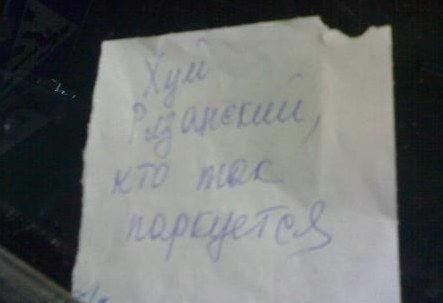 Хуй
Рязанский,
кто так
паркуется